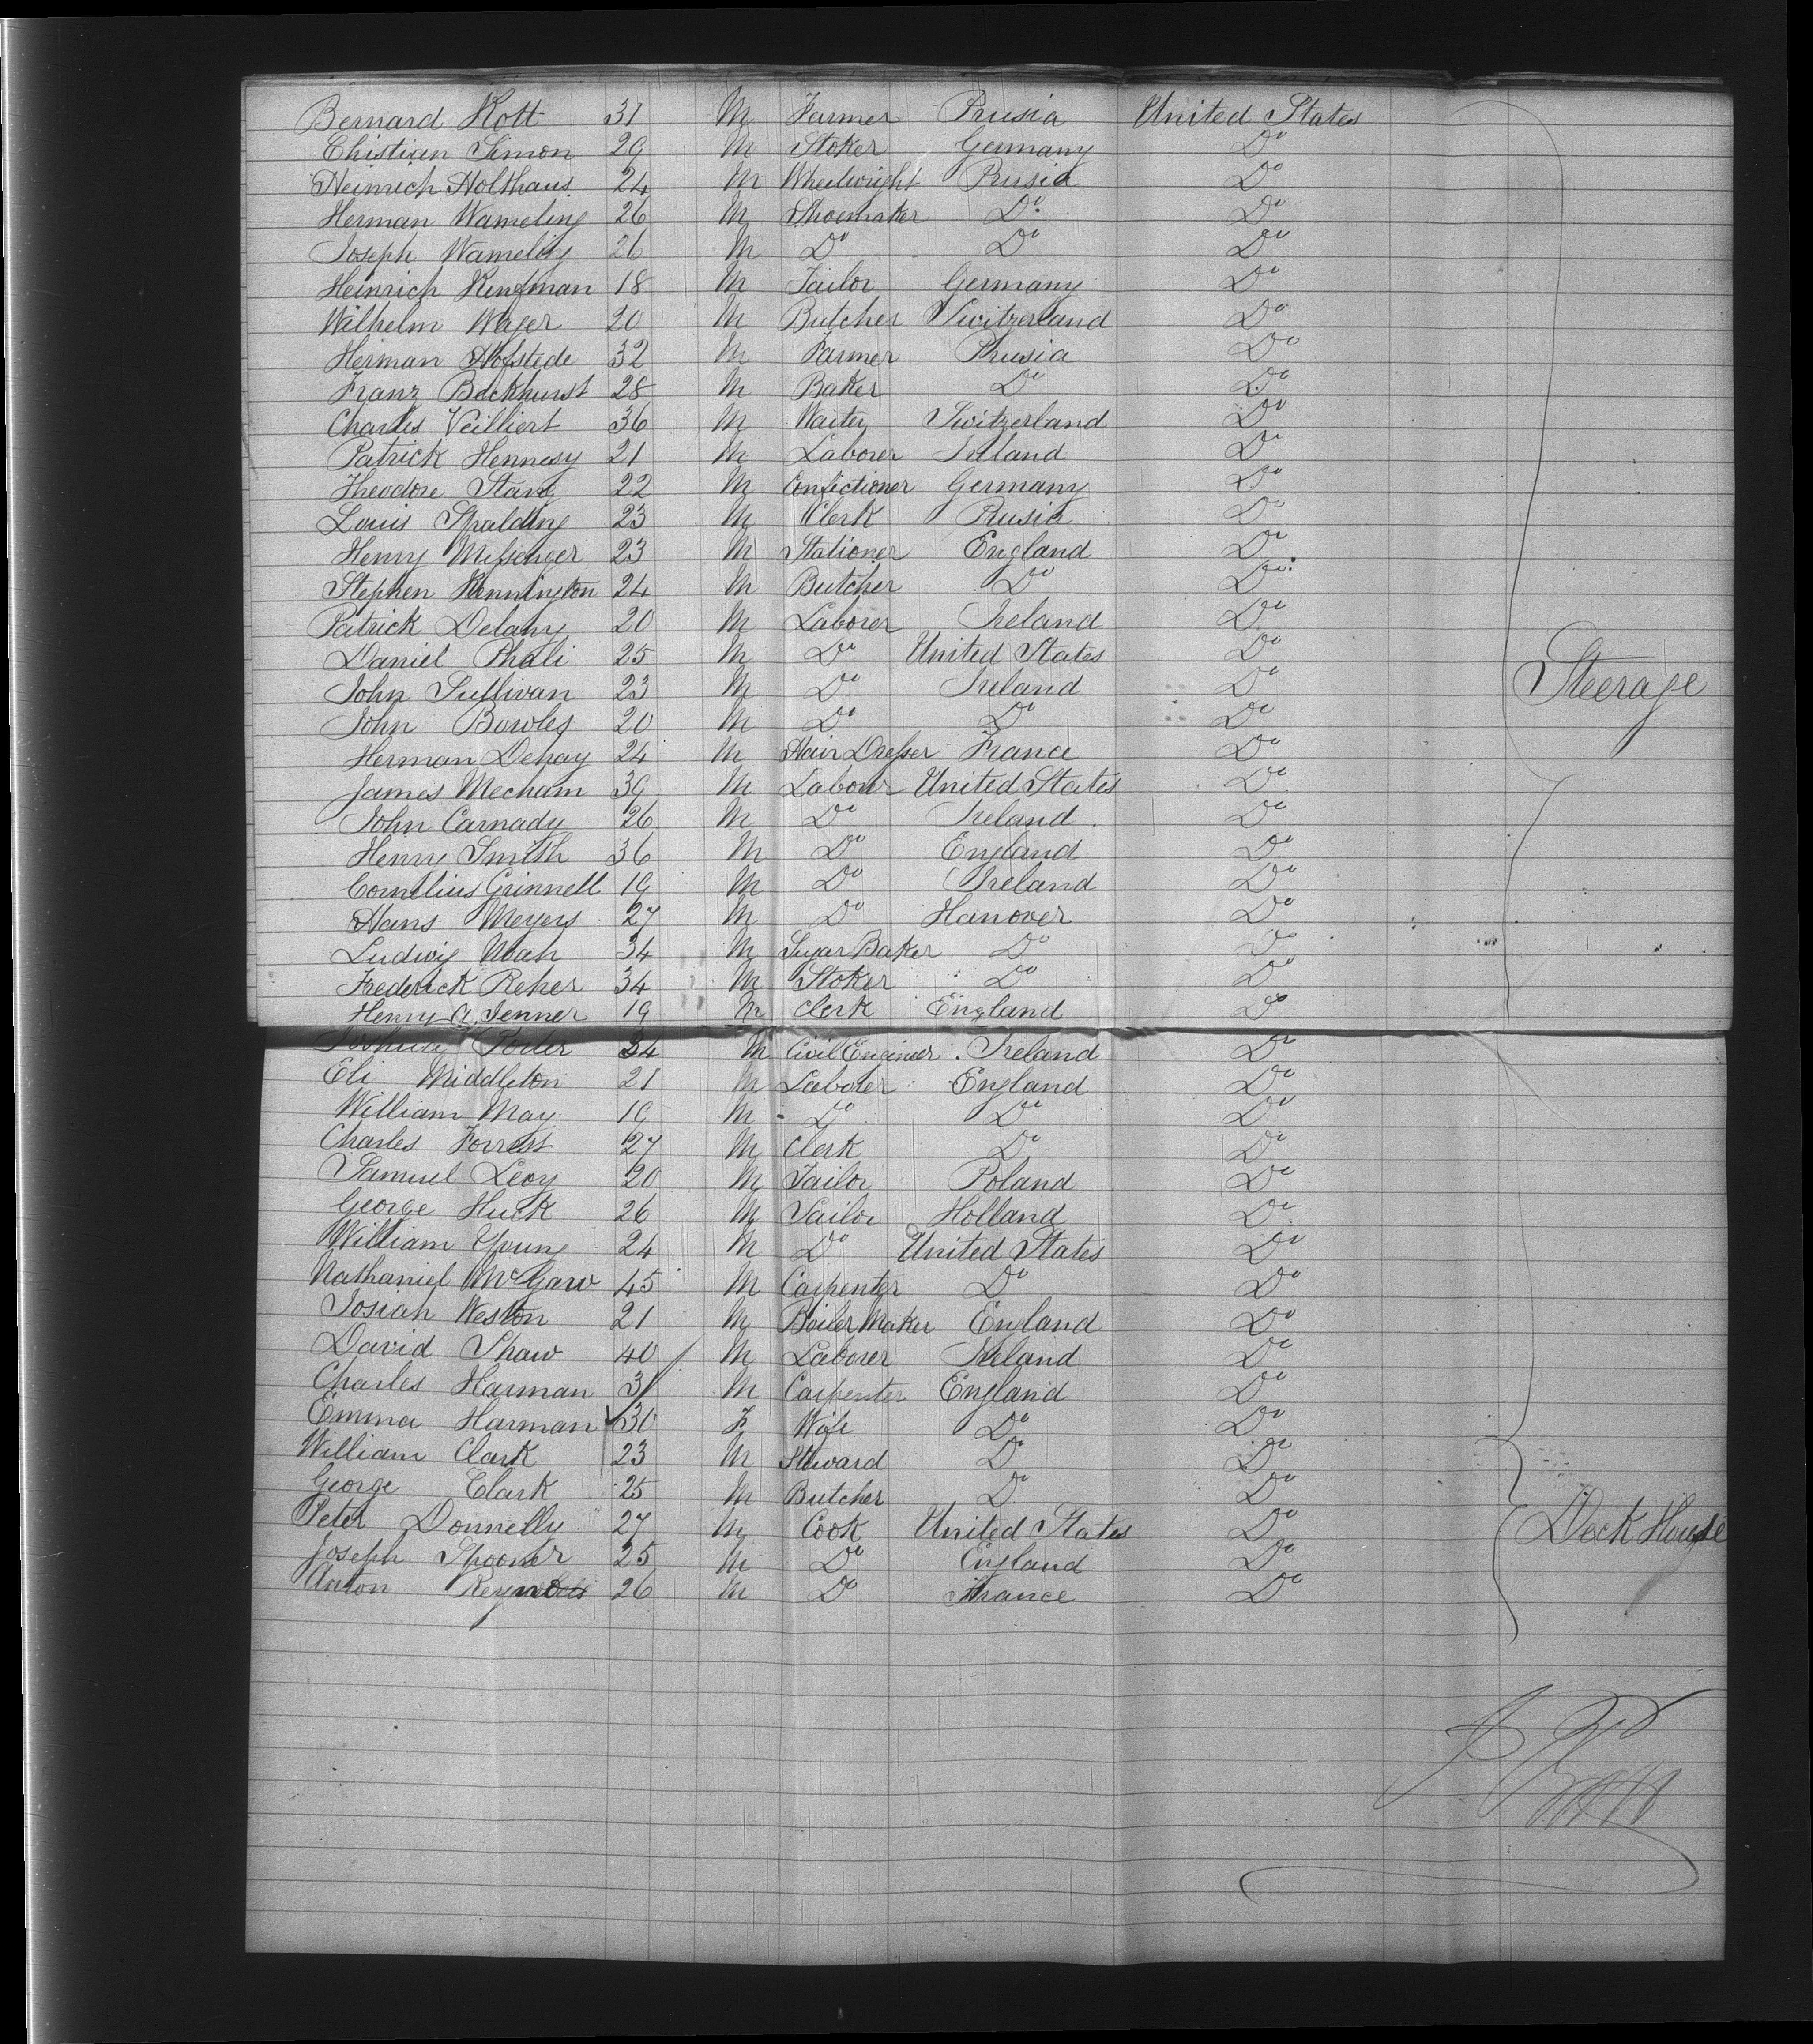 Bernard Kott 31 M Farmer Prusia United States
Christian Simon 29 M Stoker Germany Do
Heinrich Holthaus 24 M Wheelwright Prusia Do
Herman Wameling 26 M Shoemaker Do Do
Joseph Wameling 26 M Do Do Do
Heinrich Kingman 18 M Tailor Germany Do
Wilhelm Wager 20 M Butcher Switzerland Do
Herman Hofstede 32 M Farmer Prusia Do
Franz Beckhurst 28 M Baker Do Do
Charles Veilliert 36 M Waiter Switzerland Do
Patrick Hennesy 21 M Laborer Ireland Do
Theodore Stang 22 M Confectioner Germany Do
Louis Spalding 23 M Clerk Prusia Do
Henry Messenger 23 M Stationer England Do
Stephen Kennington 24 M Butcher Do Do
Patrick Delany 20 M Laborer Ireland Do
Daniel Phali 25 M Do United States Do
John Sullivan 23 M Do Ireland Do Steerage
John Bowles 20 M Do Do Do
Herman Dehay 24 M Hair Dresser France Do
James Mecham 39 M Laborer United States Do
John Carnady 26 M Do Ireland Do
Henry Smith 36 M Do England Do
Cornelius Grinnell 19 M Do Ireland Do
Hans Meyers 27 M Do Hanover Do
Ludwig Noah 34 M Sugar Baker Do Do
Frederick Reher 34 M Stoker Do Do
Henry A Jenner 19 M Clerk England Do
34 M Civil Engineer Ireland Do
Eli Middleton 21 M Laborer England Do
William May 19 M Do Do Do
Charles Forrest 27 M Clerk Do Do
Samuel Levy 20 M Tailor Poland Do
George Huck 26 M Sailor Holland Do
William Young 24 M Do United States Do
Nathaniel McGaw 45 M Carpenter Do Do
Josiah Weston 21 M Boiler Maker England Do
David Shaw 40 M Laborer Ireland Do
Charles Harman 31 M Carpenter England Do
Emma Harman 30 F Wife Do Do
William Clark 23 M Steward Do Do
George Clark 25 M Butcher Do Do
Peter Donnelly 27 M Cook United States Do Deck House
Joseph Spooner 25 M Do England Do
Anton 26 M Do France Do